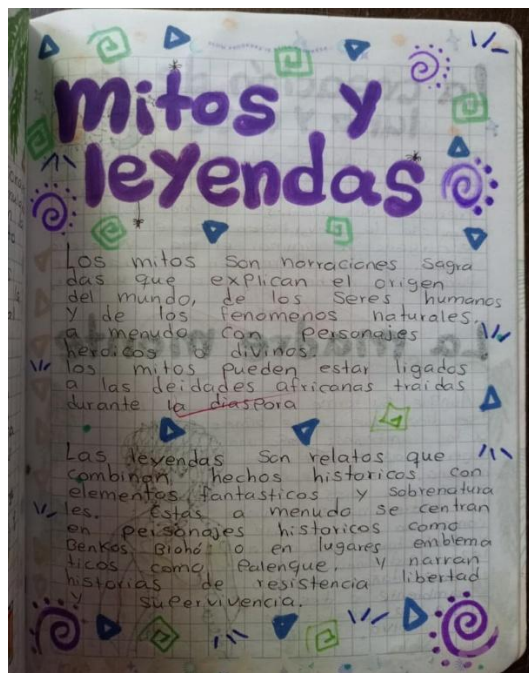 mitos y
leyendas
Los mitos son norraciones sagra
das que explican el origen
del mundo, de los seres humanos
y de los fenomenos naturales,
a menudo con personajes
heroicos o divinos.
los mitos pueden estar ligados
a las deidades africanas traidas
durante la diaspora
Las leyendas son relatos que
combinan hechos historicos con
elementos fantasticos y sobrenatura
les. Estas a menudo se centran
en personajes historicos como
Benkos Biohó o en lugares emblema
ticos como Palenque, y narran
historias de resistencia libertad
y supervivencia.